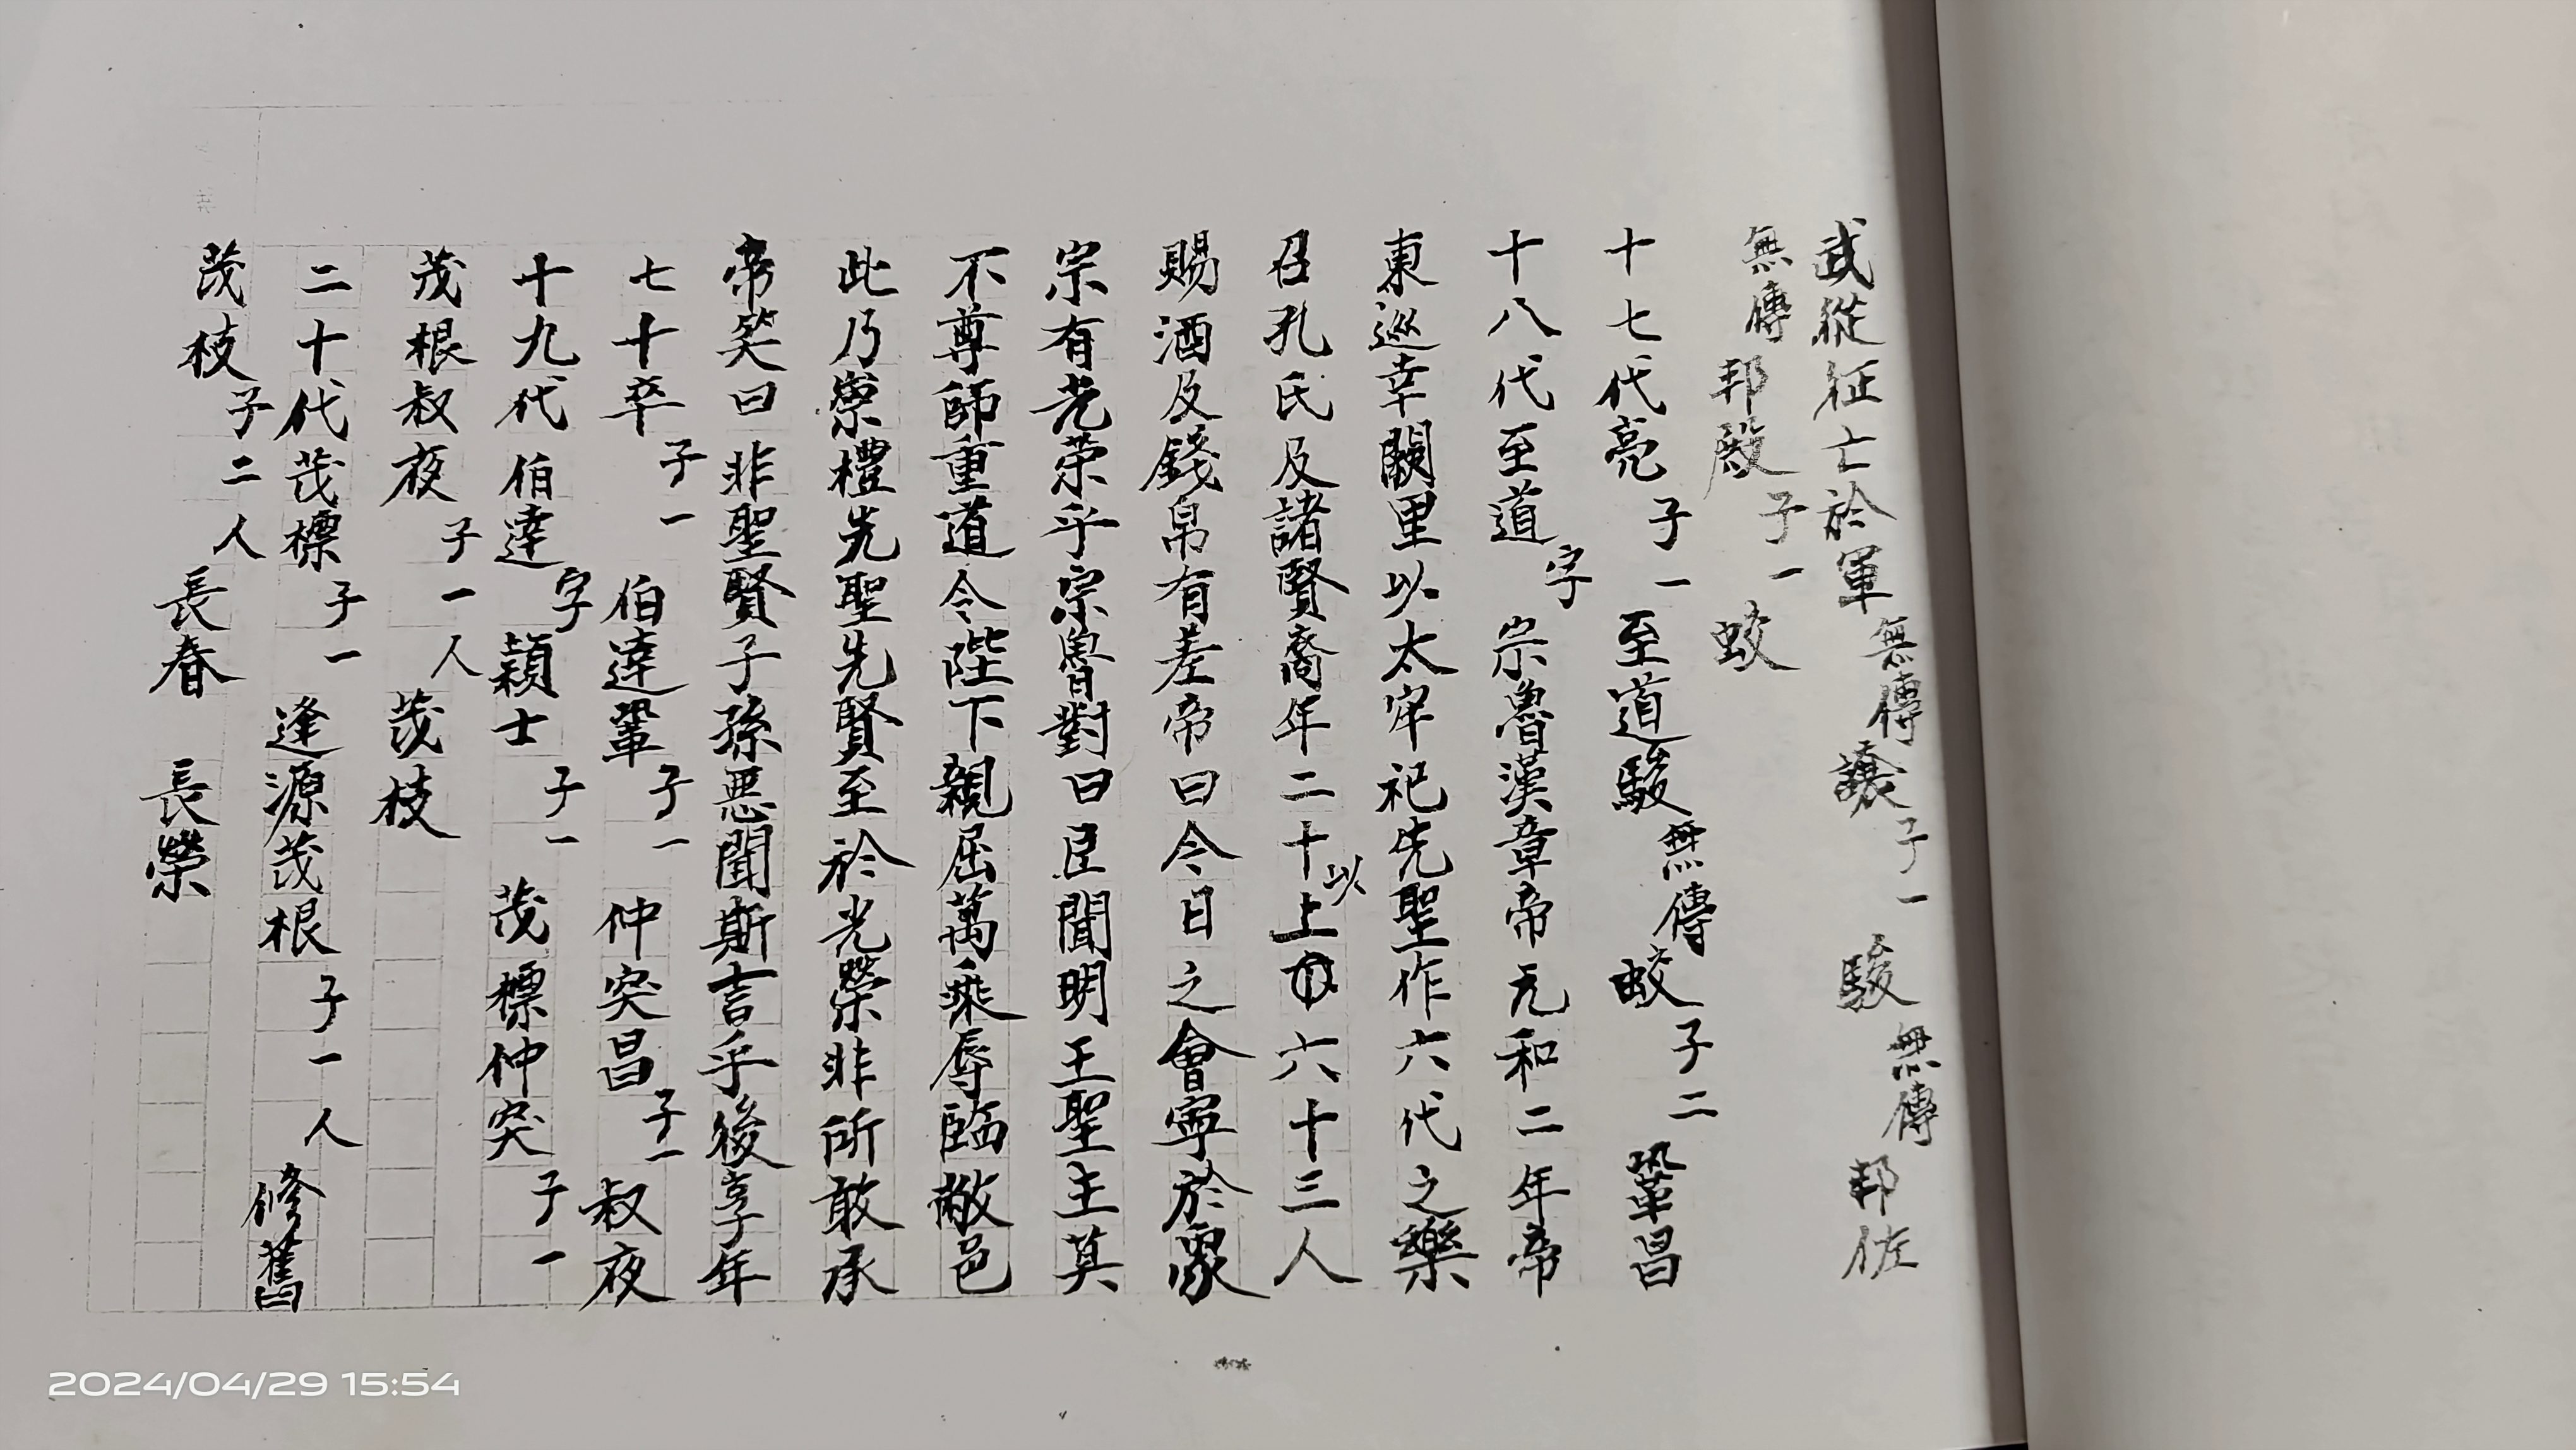 武從征亡於軍無傳讓子一駿無傳邦佐
無傳邦殿子一蛟
十七代亮子一至道駿無傳蛟子二鞏昌
十八代至道字宗魯漢章帝元和二年帝
東巡幸闕里以太牢祀先聖作六代之樂
召孔氏及諸賢裔年二十以上六十三人
賜酒及錢帛有差帝曰今日之會寧於眾
宗有光荣乎宗魯對曰臣聞明王聖主莫
不尊師重道令陛下親屈萬乘辱臨敝邑
此乃崇禮先聖先賢至於光榮非所敢承
帝笑曰非聖賢子孫惡聞斯言乎後享年
七十卒子一伯達鞏子一仲突昌子一叔夜
十九代伯達字穎士子一茂標仲突子一
茂根叔夜子一人茂枝
二十代茂標子一逢源茂根子一人修舊
茂枝子二人長春長榮
2024/04/29 15:54